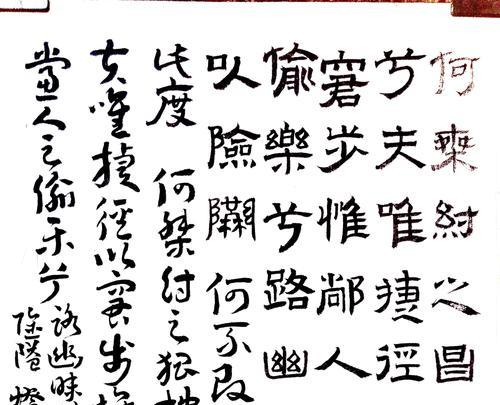 何桀紂之昌
兮夫唯捷徑
窘步惟人
偷樂兮路幽
以險隘何不改
此度 何桀紂之猖
夫唯捷徑以窘步
當人之偷乐兮
路幽昧
險隘